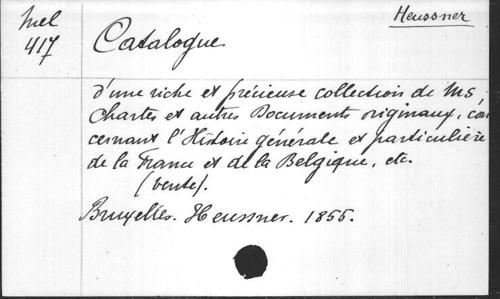 Heussner
Mel
417
Catalogue
d'une riche et précieuse collection de Ms
Chartes et autres Documents originaux, con
cernant l'Histoire générale et particulière
de la France et de la Belgique, etc.
(vente).
Bruxelles. Heussner. 1855.